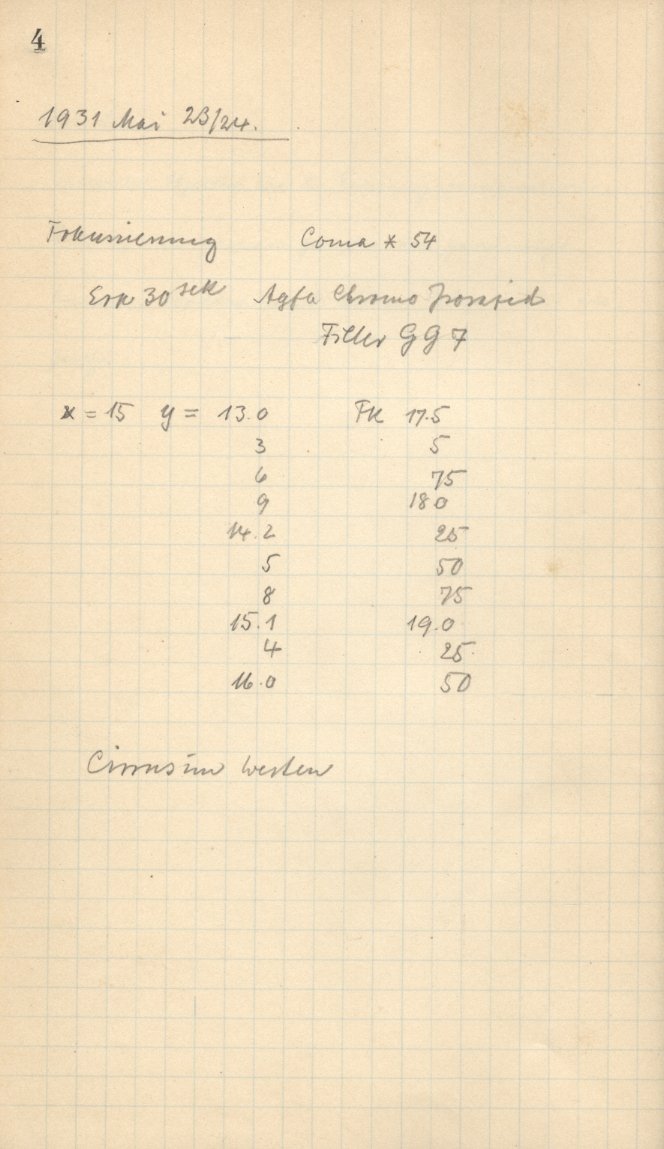 4
1931 Mai 23/24.
Fokussierung Coma * 54
Exp 30 sek Agfa Chromo Isorapid
Filter GG 7
x = 15 y = 13.0 Fk 17.5
3 5
6 75
9 18 0
14.2 25
5 50
8 75
15.1 19.0
4 25
16.0 50
Cirrus im Westen